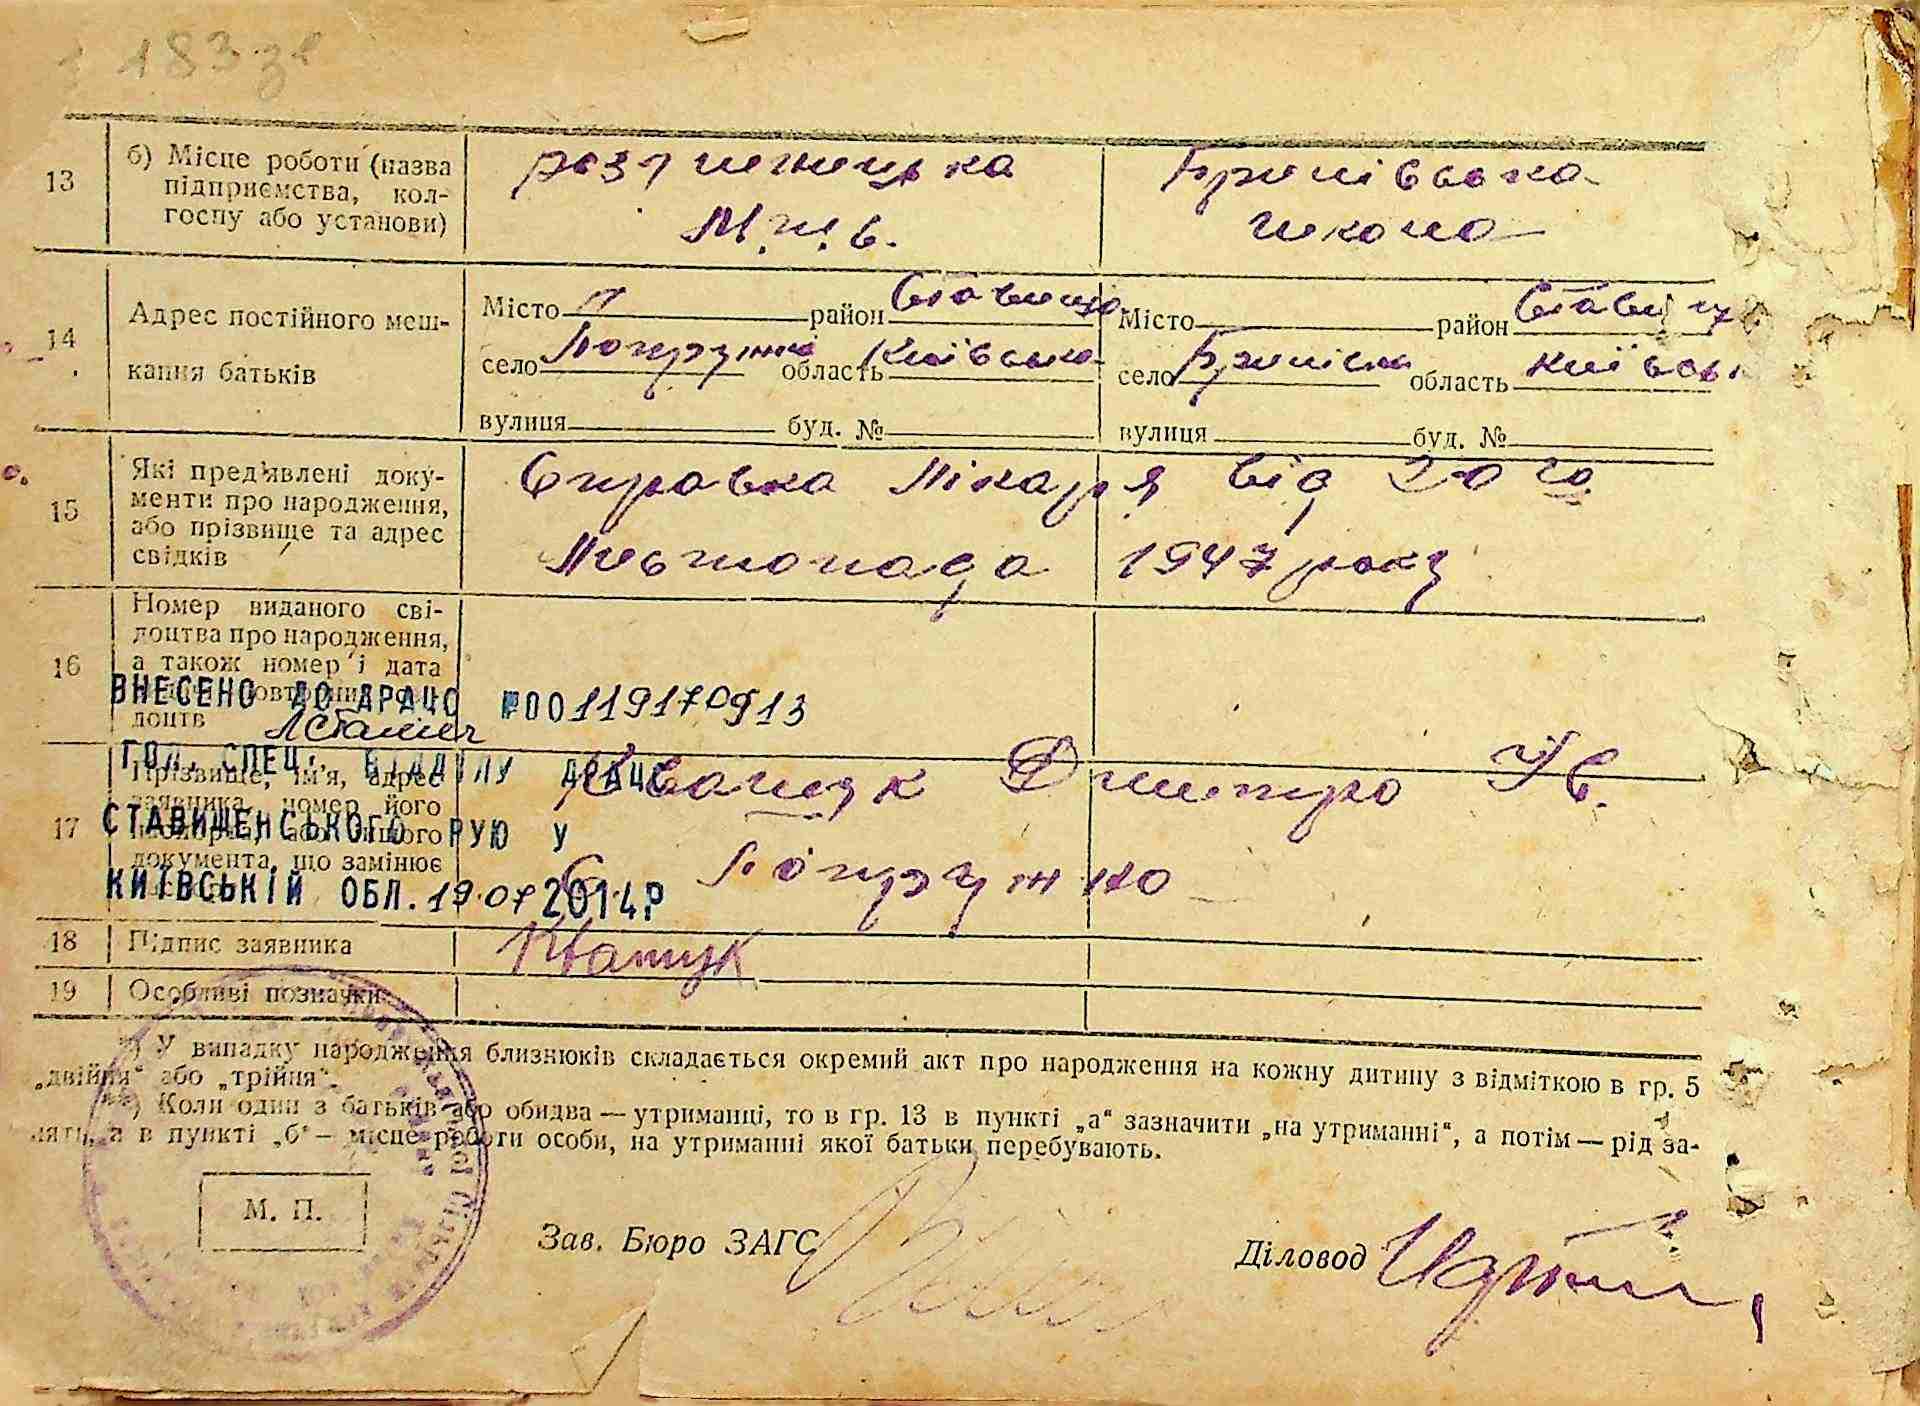 183 зв
13
б) Місце роботи (назва підприємства, колгоспу або установи)
М.т.с.
Брилівська
школа
14
Адрес постійного мешкання батьків
Місто район Ставище
село Попружна область Київська
вулиця буд. №
Місто район Ставищ
село Брилівка область Київськ
вулиця буд. №
15
Які пред'явлені документи про народження, або прізвище та адрес свідків
Справка Лікаря від 20 го
Листопада 1947 року
16
Номер виданого свідоцтва про народження, а також номер і дата
ВНЕСЕНО ДО ДРАЦС №00119170913
ГОЛ. СПЕЦ. ВІДДІЛУ ДРАЦС
СТАВИЩЕНСЬКОГО РУЮ У
КИЇВСЬКІЙ ОБЛ. 19.07 2014Р
17
Прізвище, ім'я, адрес заявника, номер його документа, що замінює
Квашук Дмитро Ів.
с. Попружна
18
Підпис заявника
Квашук
19
Особливі позначки
*) У випадку народження близнюків складається окремий акт про народження на кожну дитину з відміткою в гр. 5
„двійня“ або „трійня“.
**) Коли один з батьків або обидва — утриманці, то в гр. 13 в пункті „а“ зазначити „на утриманні“, а потім — рід за-
няття, а в пункті „б“ — місце роботи особи, на утриманні якої батьки перебувають.
М. П.
Зав. Бюро ЗАГС
Діловод